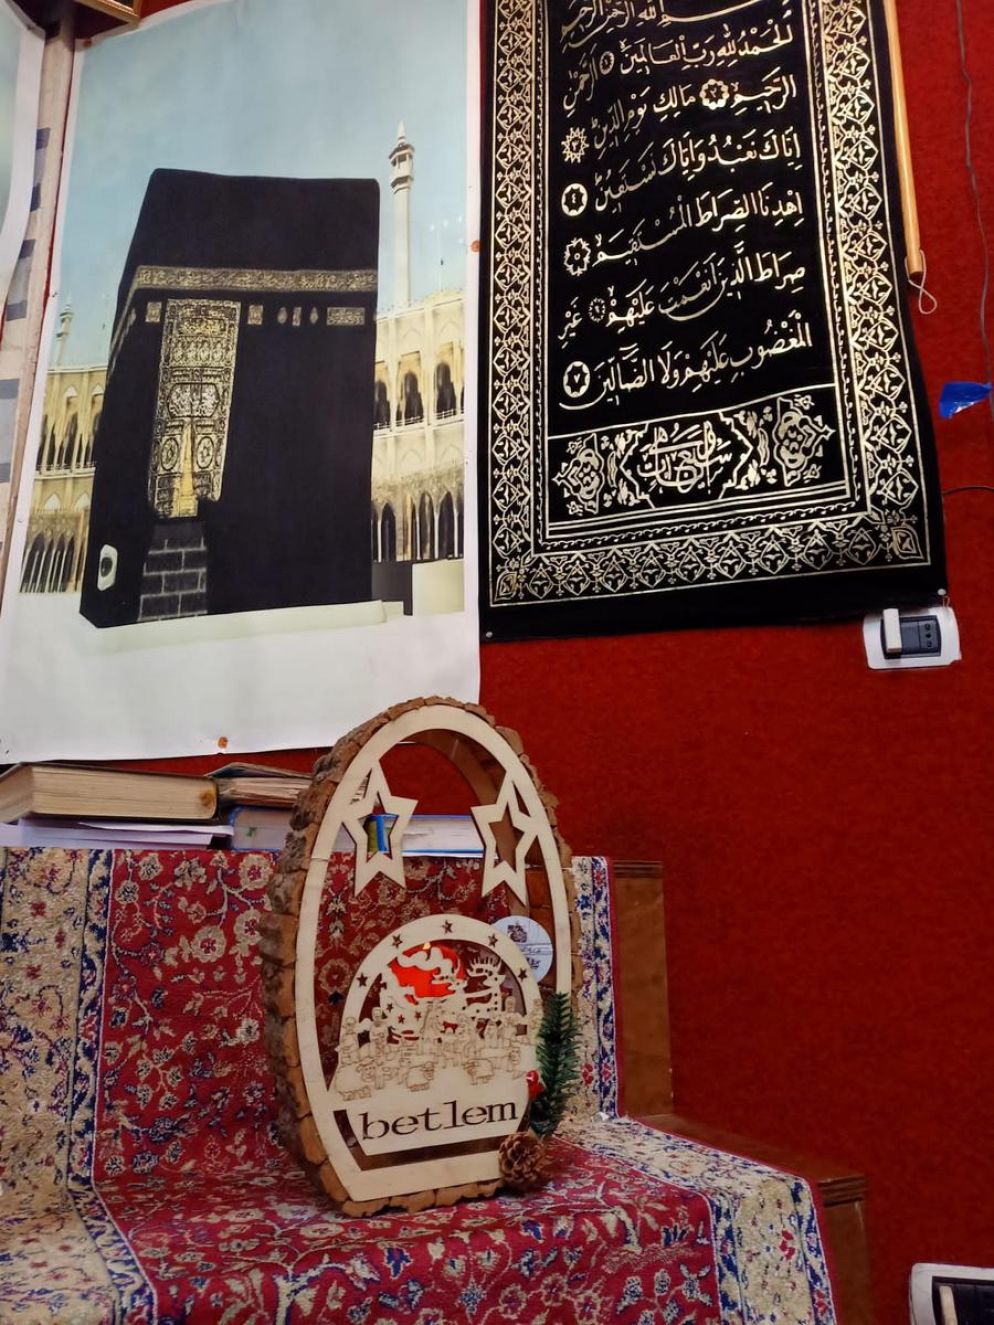 بسم الله الرحمن الرحيم
الحمد لله رب العالمين ۝ الرحمن
الرحيم ۝ مالك يوم الدين ۝
اياك نعبد واياك نستعين ۝٤
اهدنا الصراط المستقيم ۝
صراط الذين انعمت عليهم ۝ غير
المغضوب عليهم ولا الضالين ۝٧
betlem